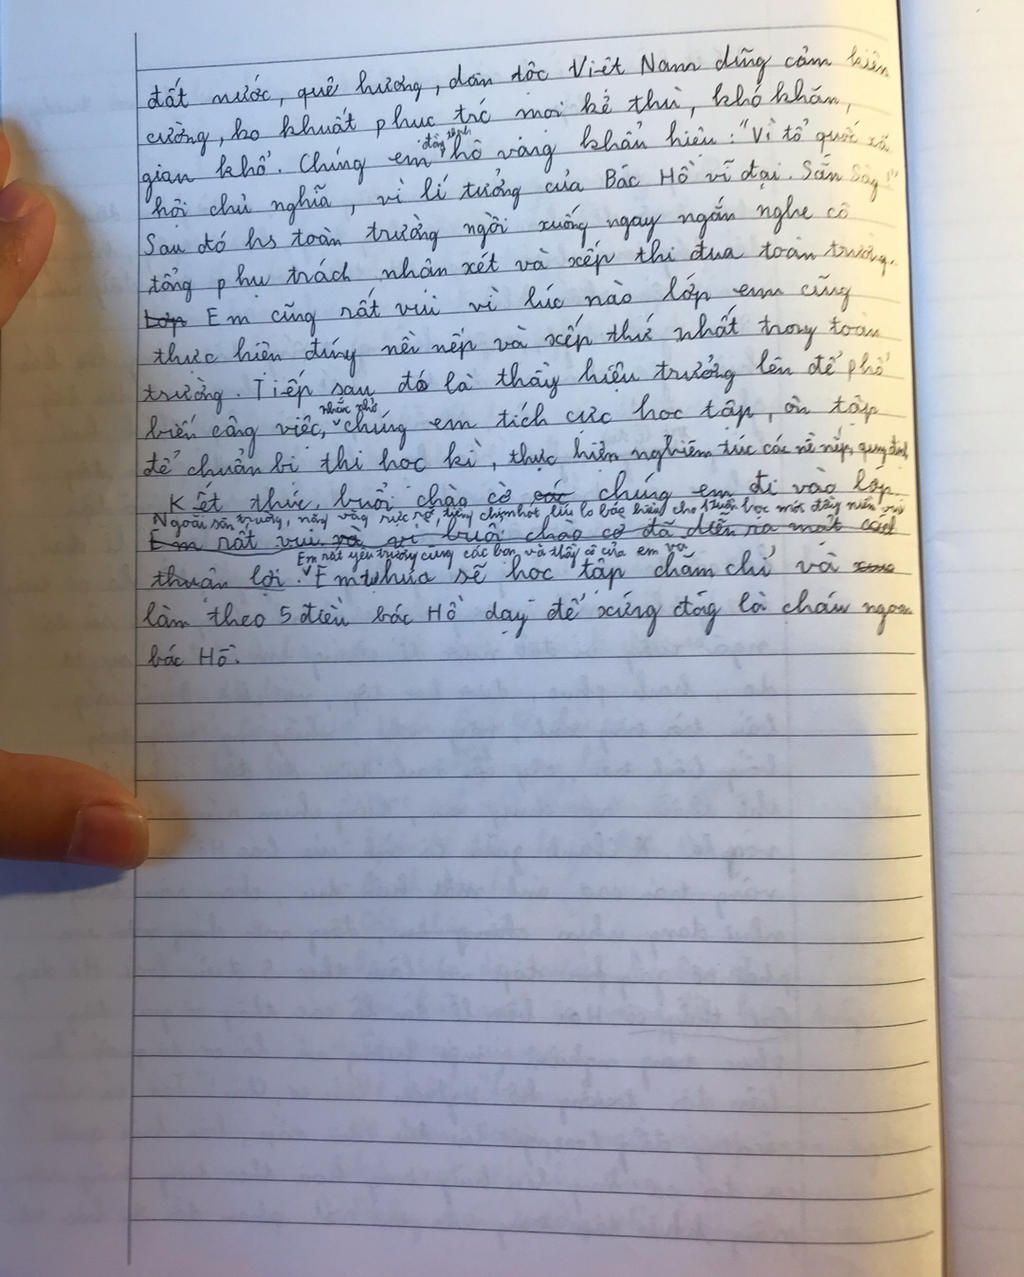 đất nước, quê hương, dân tộc Việt Nam dũng cảm kiên
cường, ko khuất phục trước mọi kẻ thù, khó khăn,
đồng thanh
gian khổ. Chúng em hô vang khẩu hiệu: "Vì tổ quốc xã
hội chủ nghĩa, vì lí tưởng của Bác Hồ vĩ đại. Sẵn Sàng!"
Sau đó hs toàn trường ngồi xuống ngay ngắn nghe cô
tổng phụ trách nhận xét và xếp thi đua toàn trường.
Lớp Em cũng rất vui vì lúc nào lớp em cũng
thực hiện đúng nề nếp và xếp thứ nhất trong toàn
trường. Tiếp sau đó là thầy hiệu trưởng lên để phổ
nhắc nhở
biến công việc, chúng em tích cực học tập, ôn tập
để chuẩn bị thi học kì, thực hiện nghiêm túc các nề nếp, quy định
Kết thúc buổi chào cờ các chúng em đi vào lớp
Ngoài sân trường, nắng vàng rực rỡ, tiếng chim hót líu lo báo hiệu cho 1 tuần học mới đầy niềm vui
Em rất vui và vì buổi chào cờ đã diễn ra một cách
Em rất yêu trường cùng các bạn và thầy cô của em
thuận lợi. Em hứa sẽ học tập chăm chỉ và
làm theo 5 điều bác Hồ dạy để xứng đáng là cháu ngoan
bác Hồ.